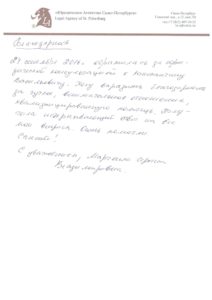 «Юридическое Агентство Санкт-Петербурга»
Legal Agency of St. Petersburg
Санкт-Петербург
Благодарность
29 октября 2014г. обратилась за
юридической консультацией к Константину
Васильевичу. Хочу выразить благодарность
за чуткое, внимательное отношение,
квалифицированную помощь. Получила
исчерпывающий ответ на все
мои вопросы. Очень помогли
Спасибо!
С уважением,
Владимировна